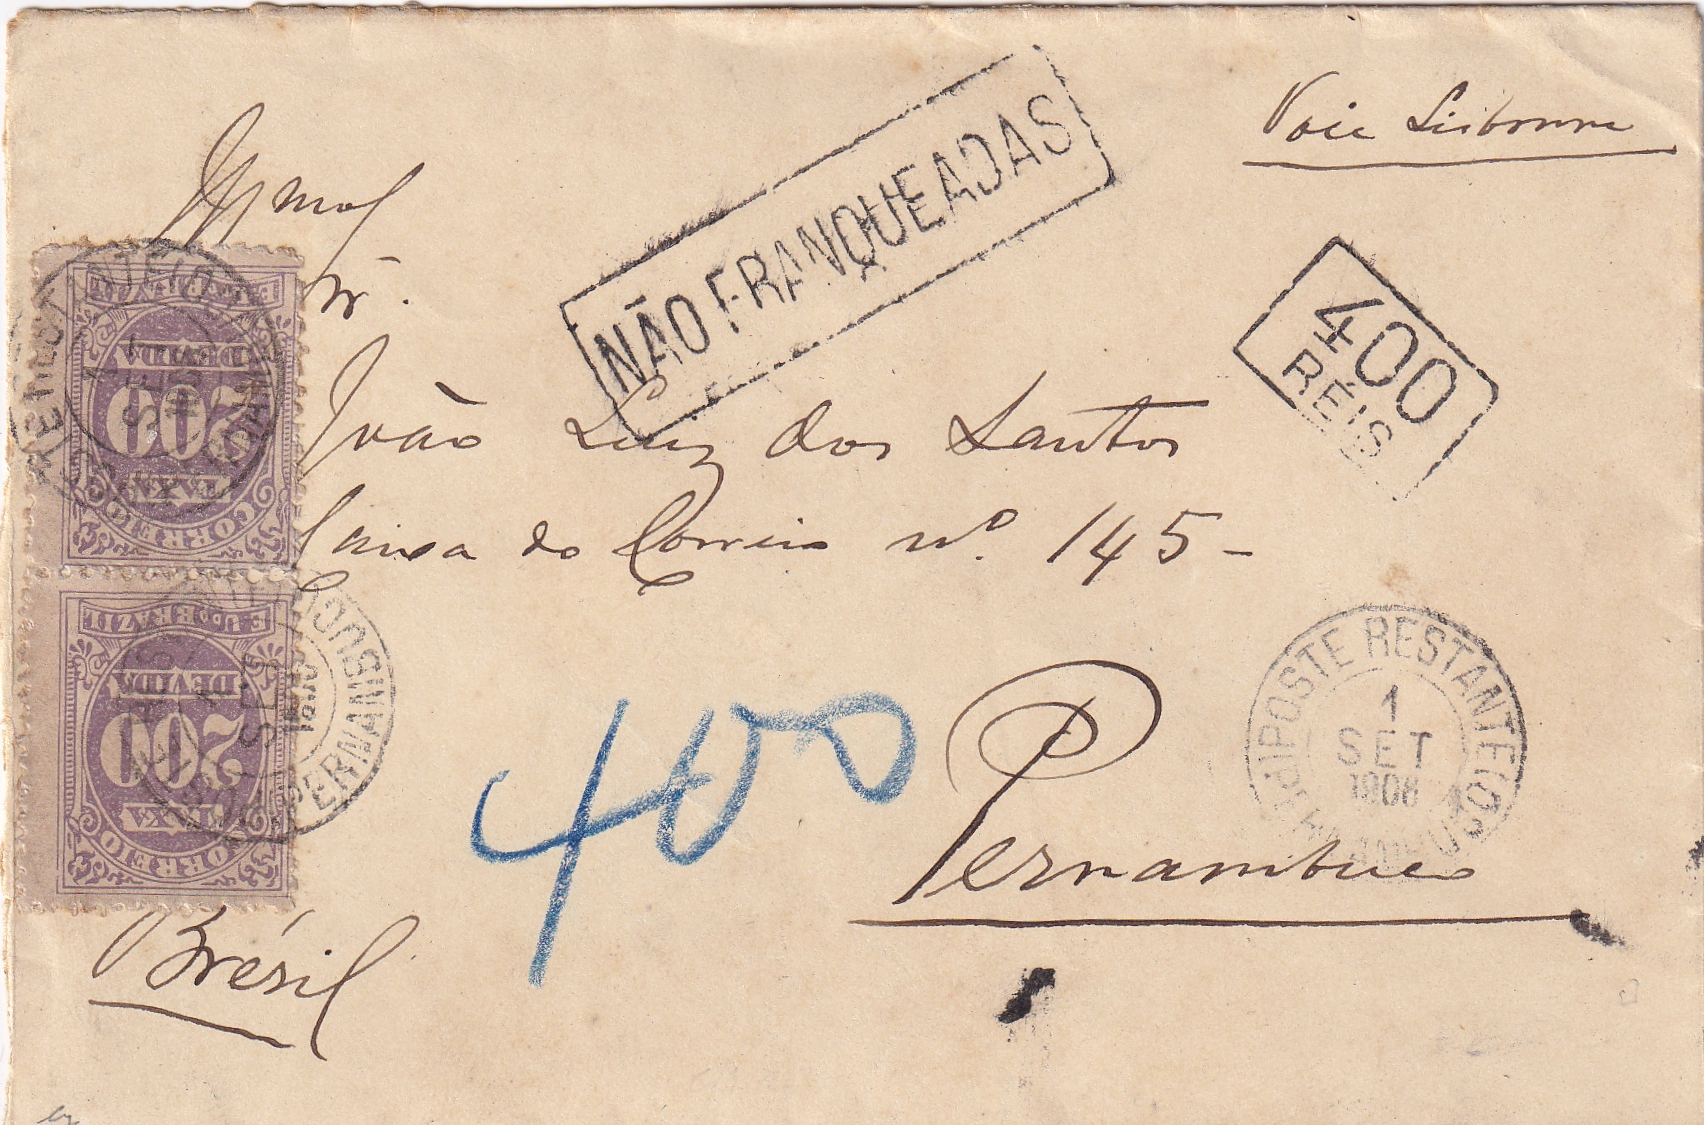 Voie Lisbonne
NÃO FRANQUEADAS
400
RÉIS
João Luiz dos Santos
Caixa do Correio nº 145-
Pernambuco
Brésil
400
POSTE RESTANTE
1
SET
1906
E. U. DO BRAZIL
DEVIDA
200
TAXA
CORREIO
E. U. DO BRAZIL
DEVIDA
200
TAXA
CORREIO
POSTE RESTANTE
1
SET
PERNAMBUCO
1
SET